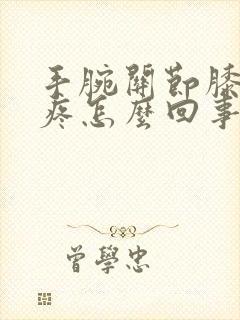 手腕關節膝
疼怎麼回事
曾學忠